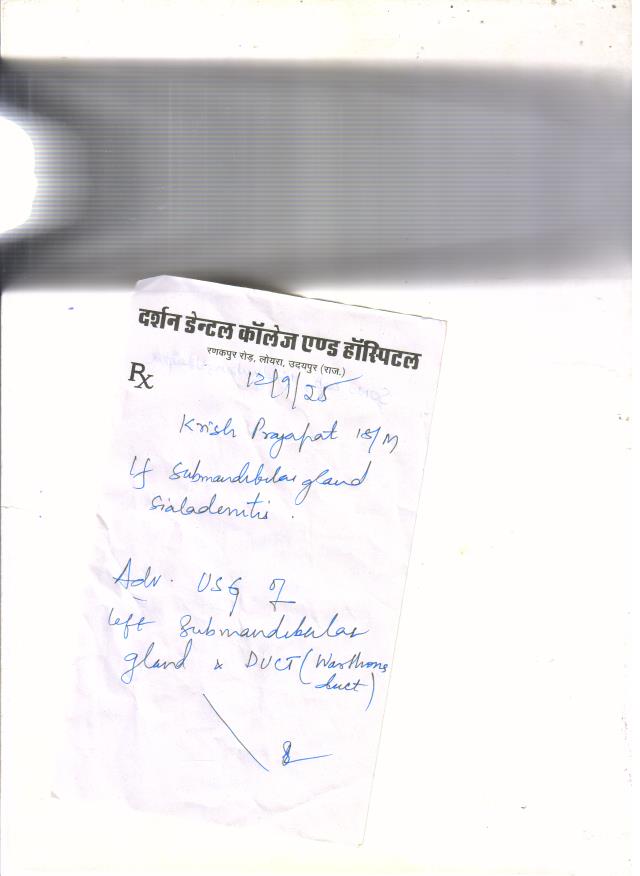 दर्शन डेन्टल कॉलेज एण्ड हॉस्पिटल
रणकपुर रोड़, लोयरा, उदयपुर (राज.)
Rx 12/9/25
Krish Prajapat 18/M
Lf Submandibular gland
Sialadenitis .
Adv. USG of
left Submandibular
gland & DUCT (Warthons
duct)